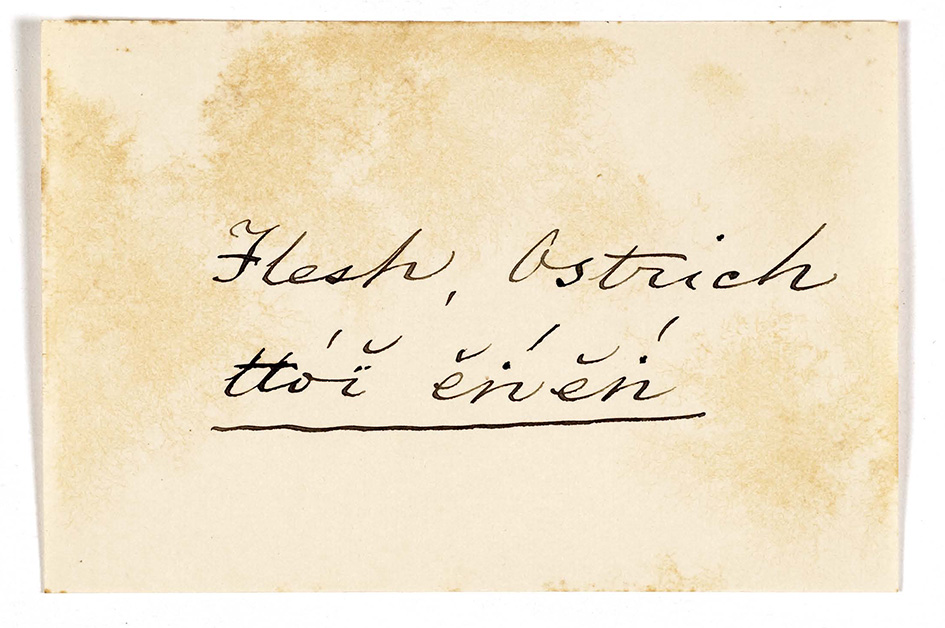 Flesh, Ostrich
ttóï̆ ĕṅ́ĕṅ́